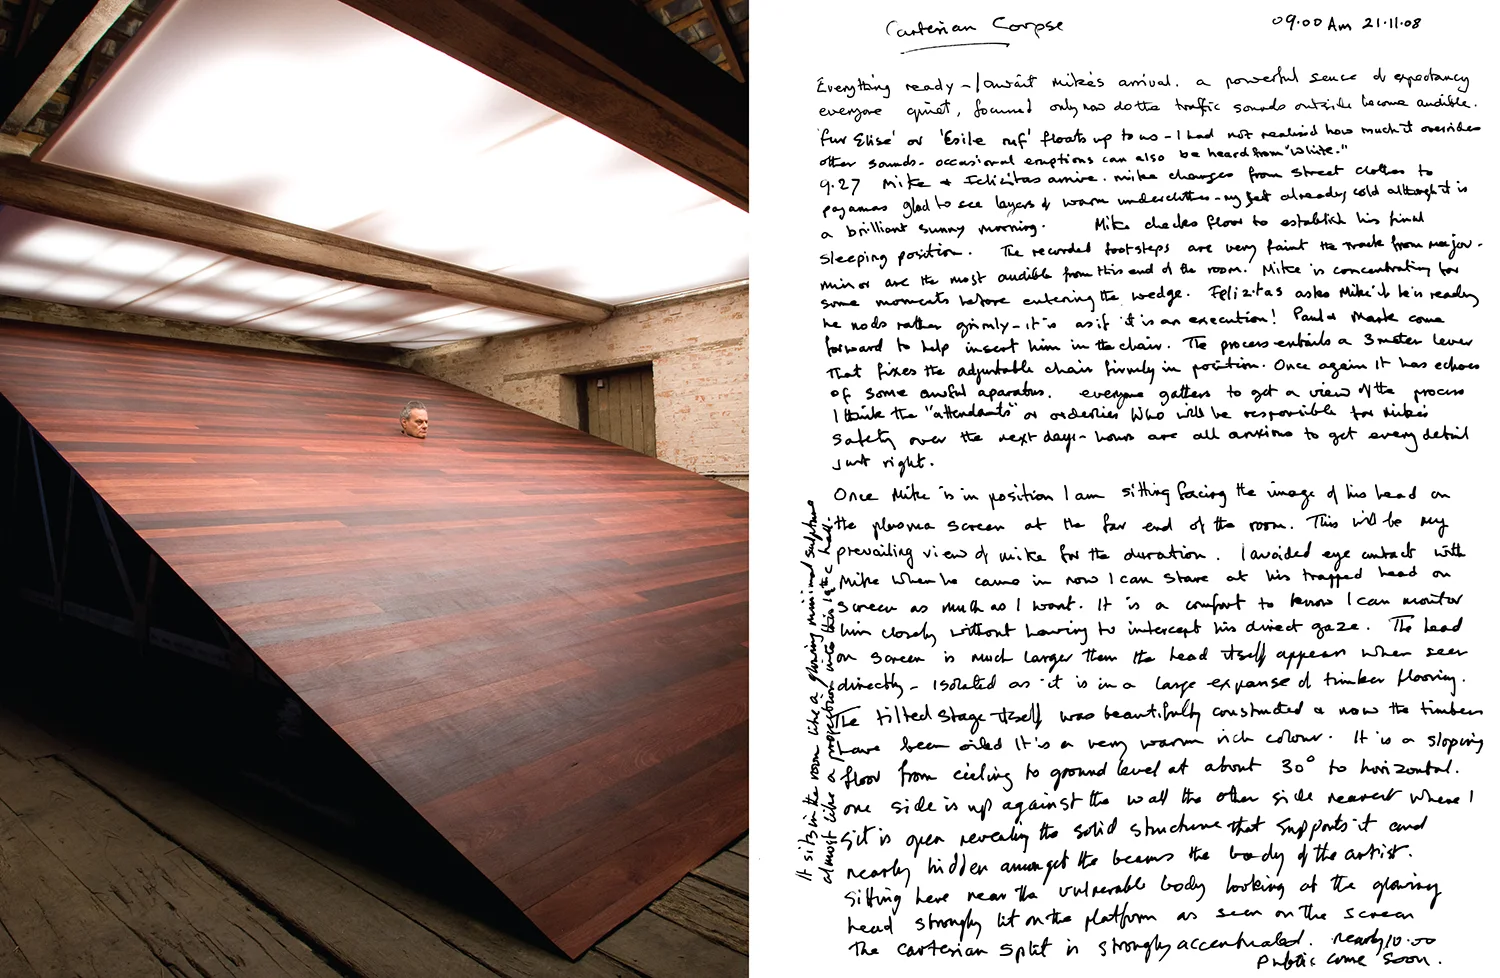 Cartesian Corpse
09.00 Am 21.11.08
Everything ready - I await Mike's arrival. a powerful sense of expectancy
everyone quiet, focused only now do the traffic sounds outside become audible.
'fur Elise' or floats up to us - I had not realised how much it overrides
other sounds - occasional eruptions can also be heard from "White."
9.27 Mike & Felicitas arrive. Mike changes from street clothes to
pajamas glad to see layers of warm underclothes - my feet already cold although it is
a brilliant sunny morning. Mike checks floor to establish his final
sleeping position. The recorded footsteps are very faint the track from major-
minor are the most audible from this end of the room. Mike is concentrating for
some moments before entering the wedge. Felizitas asks Mike if he is ready
he nods rather grimly - it is as if it is an execution! Paul & Mark come
forward to help insert him in the chair. The process entails a 3 meter lever
that fixes the adjustable chair firmly in position. Once again it has echoes
of some awful aparatus. everyone gathers to get a view of the process
I think the "attendants" or orderlies who will be responsible for Mike's
safety over the next days - hours are all anxious to get every detail
just right.
Once Mike is in position I am sitting facing the image of his head on
the plasma screen at the far end of the room. This will be my
prevailing view of mike for the duration. I avoided eye contact with
Mike when he came in now I can stare at his trapped head on
screen as much as I want. It is a comfort to know I can monitor
him closely without having to intercept his direct gaze. The head
on screen is much larger than the head itself appears when seen
directly - isolated as it is in a large expanse of timber flooring.
The tilted stage itself was beautifully constructed & now the timbers
have been oiled It's a very warm rich colour. It is a sloping
floor from ceiling to ground level at about 30° to horizontal.
one side is up against the wall the other side nearest where I
sit is open revealing the solid structure that supports it and
nearly hidden amongst the beams the body of the artist.
Sitting here near the vulnerable body looking at the glowing
head strongly lit on the platform as seen on the screen
The cartesian split is strongly accentuated. nearly 10.00
Public come soon.
It sits in the room like a glowing minimal sculpture
almost like a projection into this 19th c hall.